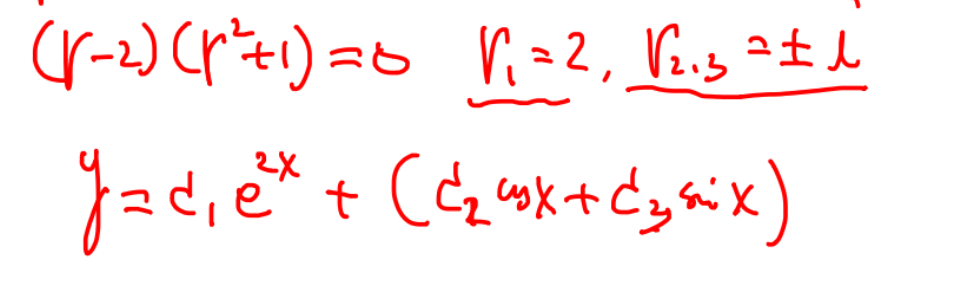 (r-2)(r²+1)=0 r₁=2, r₂.₃=±i
y=c₁e²ˣ+(c₂cosx+c₃sinx)